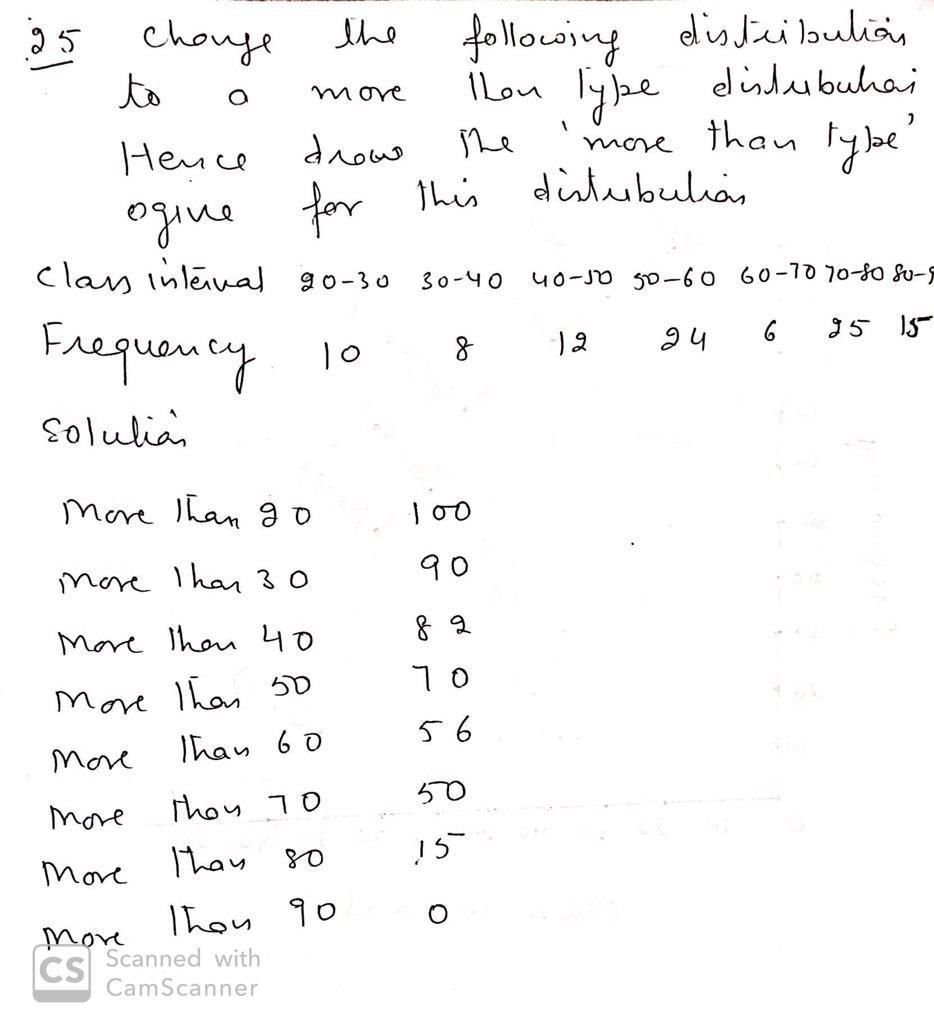 25 change the following distribution
to a more than type distribution
Hence draw the 'more than type'
ogive for this distribution
Class interval 20-30 30-40 40-50 50-60 60-70 70-80 80-9
Frequency 10 8 12 24 6 25 15
Solution
More than 20 100
more than 30 90
More than 40 82
More than 50 70
More than 60 56
More than 70 50
More than 80 15
More than 90 0
CS Scanned with
CamScanner